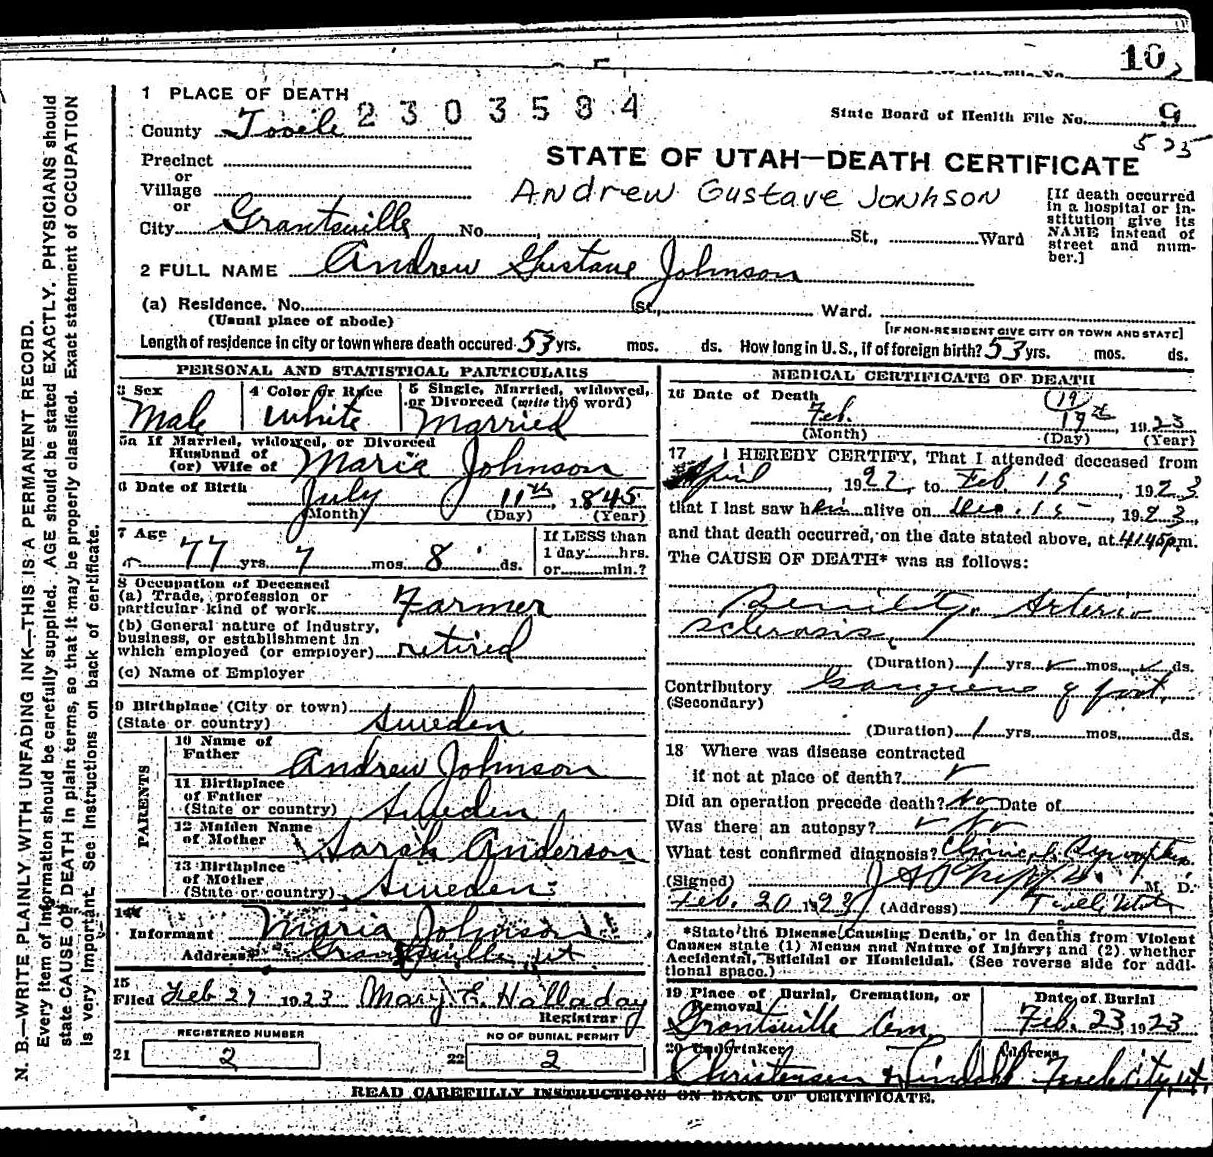 10
1 PLACE OF DEATH
2303584
State Board of Health File No. 9
525
County Tooele
Precinct
or
Village
or
City Grantsville No. St., Ward
STATE OF UTAH—DEATH CERTIFICATE
Andrew Gustave Jonhson
[If death occurred
in a hospital or in-
stitution give its
NAME instead of
street and num-
ber.]
2 FULL NAME Andrew Gustave Johnson
(a) Residence. No. St., Ward.
(Usual place of abode)
[IF NON-RESIDENT GIVE CITY OR TOWN AND STATE]
Length of residence in city or town where death occured 53 yrs. mos. ds. How long in U.S., if of foreign birth? 53 yrs. mos. ds.
PERSONAL AND STATISTICAL PARTICULARS
3 Sex
Male
4 Color or Race
White
5 Single, Married, widowed,
or Divorced (write the word)
Married
5a If Married, widowed, or Divorced
Husband of
(or) Wife of Maria Johnson
6 Date of Birth July 11th, 1845
(Month) (Day) (Year)
7 Age
77 yrs. 7 mos. 8 ds.
If LESS than
1 day hrs.
or min.?
8 Occupation of Deceased
(a) Trade, profession or
particular kind of work Farmer
(b) General nature of Industry,
business, or establishment in
which employed (or employer) retired
(c) Name of Employer
9 Birthplace (City or town)
(State or country) Sweden
PARENTS
10 Name of
Father Andrew Johnson
11 Birthplace
of Father
(State or country) Sweden
12 Maiden Name
of Mother Sarah Anderson
13 Birthplace
of Mother
(State or country) Sweden
14
Informant Maria Johnson
Address Grantsville ut.
15
Filed Feb 27 1923 Mary E. Halladay
Registrar
REGISTERED NUMBER
21 2
NO OF BURIAL PERMIT
22 2
MEDICAL CERTIFICATE OF DEATH
16 Date of Death
19
Feb. 19th, 1923
(Month) (Day) (Year)
17 I HEREBY CERTIFY, That I attended deceased from
April, 1922, to Feb 19, 1923
that I last saw him alive on Dec. 15, 1923,
and that death occurred, on the date stated above, at 4:45 p.m.
The CAUSE OF DEATH* was as follows:
Senility. Arterio
sclerosis,
(Duration) 1 yrs. mos. ds.
Contributory Gangrene of foot.
(Secondary)
(Duration) 1 yrs. mos. ds.
18 Where was disease contracted
if not at place of death?
Did an operation precede death? No Date of
Was there an autopsy? No
What test confirmed diagnosis? Clinical Symptoms.
(Signed) M. D.
Feb. 20 1923 (Address) Tooele, Utah
*State the Disease Causing Death, or in deaths from Violent
Causes state (1) Means and Nature of Injury; and (2) whether
Accidental, Suicidal or Homicidal. (See reverse side for addi-
tional space.)
19 Place of Burial, Cremation, or
Removal
Grantsville Cem
Date of Burial
Feb. 23, 1923
20 Undertaker
Christensen
Address
Tooele City, ut.
READ CAREFULLY INSTRUCTIONS ON BACK OF CERTIFICATE.
N. B.—WRITE PLAINLY WITH UNFADING INK—THIS IS A PERMANENT RECORD.
Every item of information should be carefully supplied. AGE should be stated EXACTLY. PHYSICIANS should
state CAUSE OF DEATH in plain terms, so that it may be properly classified. Exact statement of OCCUPATION
is very important. See Instructions on back of certificate.